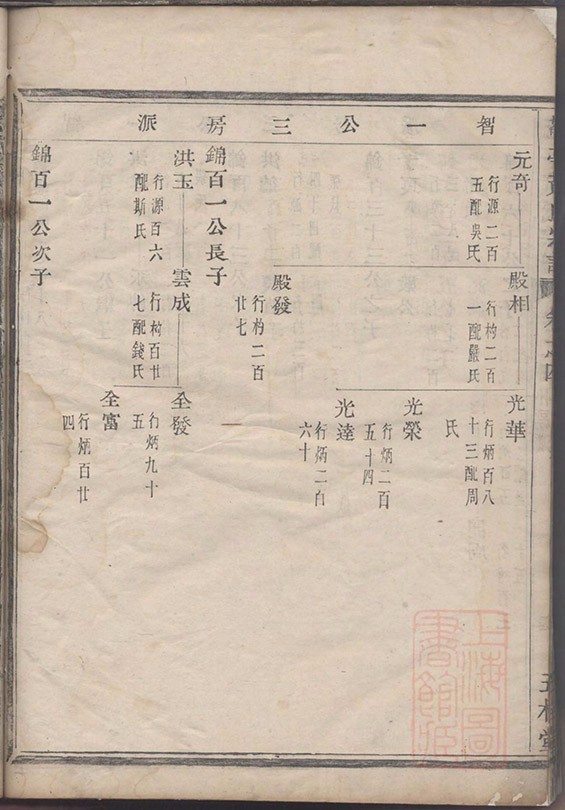 智一公三房派
元奇
行源二百
五配吳氏
殿相
行枃二百
一配嚴氏
光華
行炳百八
十三配周
氏
光榮
行炳二百
五十四
光達
行炳二百
六十
殿發
行枃二百
廿七
錦百一公長子
洪玉
行源百六
配斯氏
雲成
行枃百廿
七配錢氏
全發
行炳九十
五
全富
行炳百廿
四
錦百一公次子
上海圖
書館藏